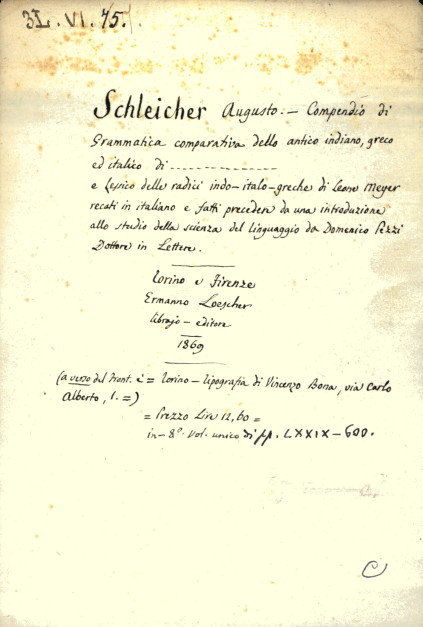 3L. VI. 75.
Schleicher Augusto. — Compendio di
Grammatica comparativa dello antico indiano, greco
ed italico di ----------------
e Lessico delle radici indo-italo-greche di Leone Meyer
recati in italiano e fatti precedere da una introduzione
allo studio della scienza del linguaggio da Domenico Pezzi
Dottore in Lettere.
Torino e Firenze
Ermanno Loescher
librajo-editore
1869
(a verso del Front. è = Torino — Tipografia di Vincenzo Bona, via Carlo
Alberto, 1. =)
= Prezzo Lire 12,60 =
in-8º. Vol. unico di pp. LXXIX-600.
C